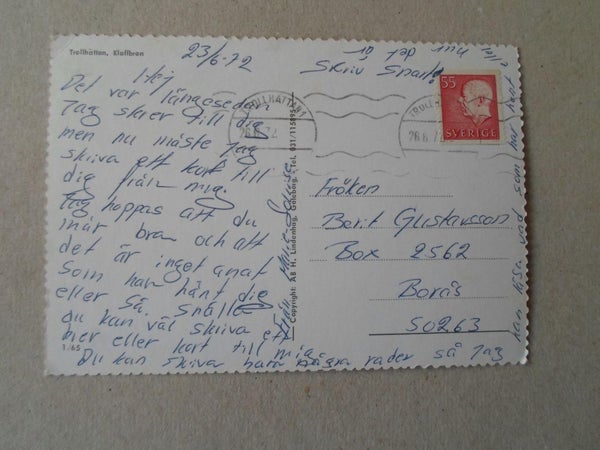 Trollhättan, Klaffbron
23/6-72
Hej
Det var längesedan
Jag skrev till dig
men nu måste Jag
skiva ett kort till
dig från mig.
Jag hoppas att du
mår bra och att
det är inget anat
Som har hänt dig
eller så. Snälla
du kan väl skiva ett
brev eller kort till mig
Du kan skiva bara några rader så Jag
kan läsa vad som har hänt
Skriv Snart!
Copyright: AB H. Lindenhag, Göteborg. Tel. 031/115895
1/65
TROLLHÄTTAN 1
26.6.72
TROLLH
26.6.72
55
SVERIGE
Fröken
Berit Gustavsson
Box 2562
Borås
50263